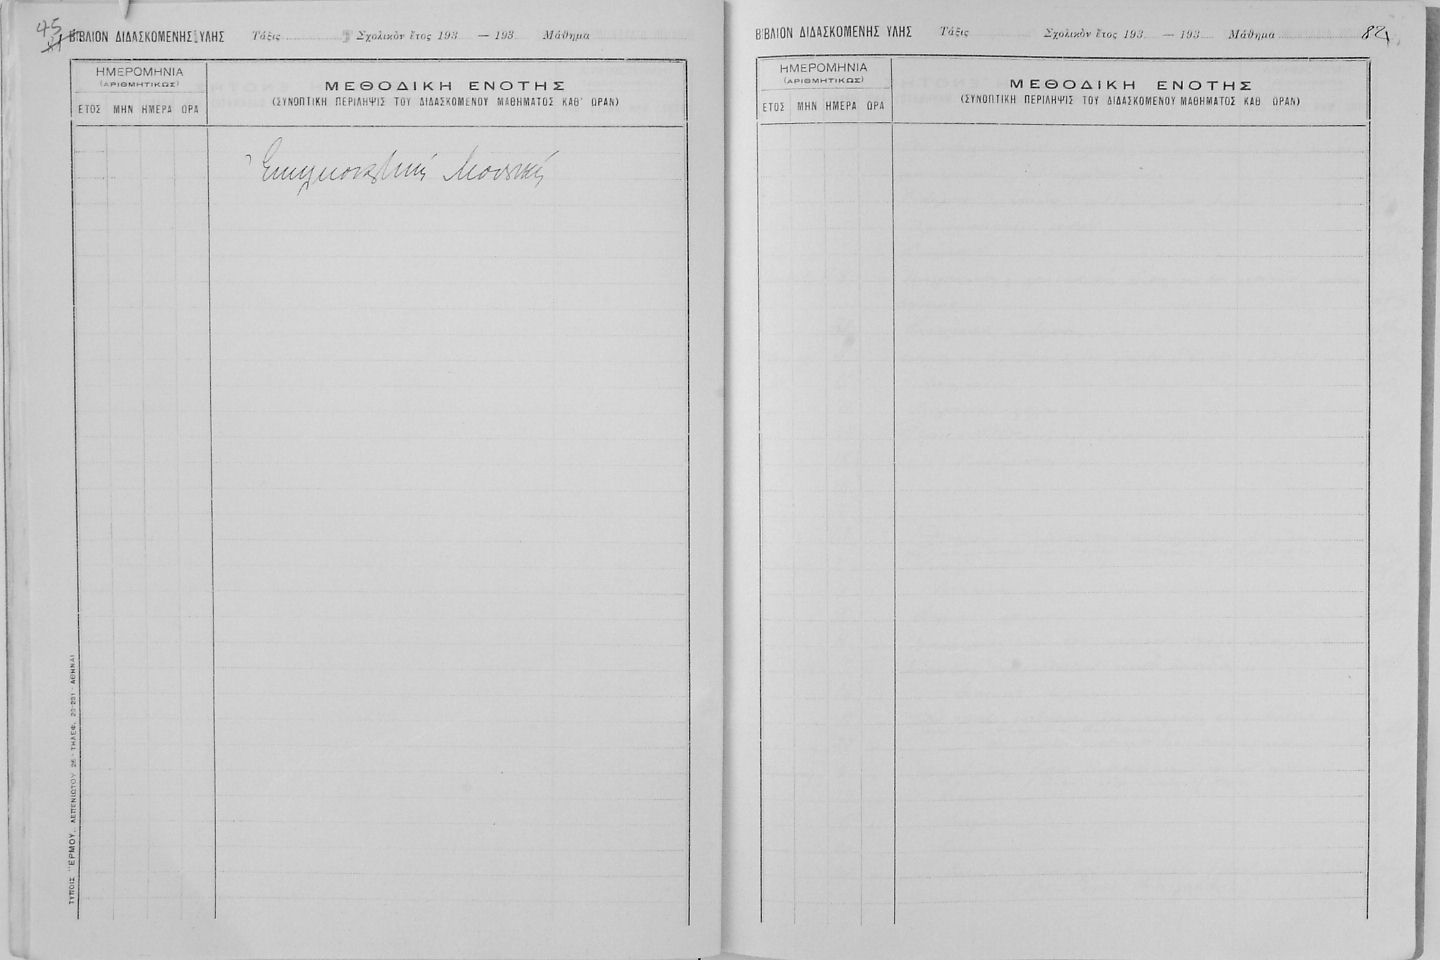 45
81
ΒΙΒΛΙΟΝ ΔΙΔΑΣΚΟΜΕΝΗΣ ΥΛΗΣ Τάξις Σχολικὸν ἔτος 193 — 193 Μάθημα
ΗΜΕΡΟΜΗΝΙΑ
(ΑΡΙΘΜΗΤΙΚΩΣ)
ΕΤΟΣ ΜΗΝ ΗΜΕΡΑ ΩΡΑ
ΜΕΘΟΔΙΚΗ ΕΝΟΤΗΣ
(ΣΥΝΟΠΤΙΚΗ ΠΕΡΙΛΗΨΙΣ ΤΟΥ ΔΙΔΑΣΚΟΜΕΝΟΥ ΜΑΘΗΜΑΤΟΣ ΚΑΘ' ΩΡΑΝ)
Μουσική
ΤΥΠΟΙΣ "ΕΡΜΟΥ,, ΛΕΠΕΝΙΩΤΟΥ 26 - ΤΗΛΕΦ. 23-231 - ΑΘΗΝΑΙ
ΒΙΒΛΙΟΝ ΔΙΔΑΣΚΟΜΕΝΗΣ ΥΛΗΣ Τάξις Σχολικὸν ἔτος 193 — 193 Μάθημα
82
ΗΜΕΡΟΜΗΝΙΑ
(ΑΡΙΘΜΗΤΙΚΩΣ)
ΕΤΟΣ ΜΗΝ ΗΜΕΡΑ ΩΡΑ
ΜΕΘΟΔΙΚΗ ΕΝΟΤΗΣ
(ΣΥΝΟΠΤΙΚΗ ΠΕΡΙΛΗΨΙΣ ΤΟΥ ΔΙΔΑΣΚΟΜΕΝΟΥ ΜΑΘΗΜΑΤΟΣ ΚΑΘ ΩΡΑΝ)